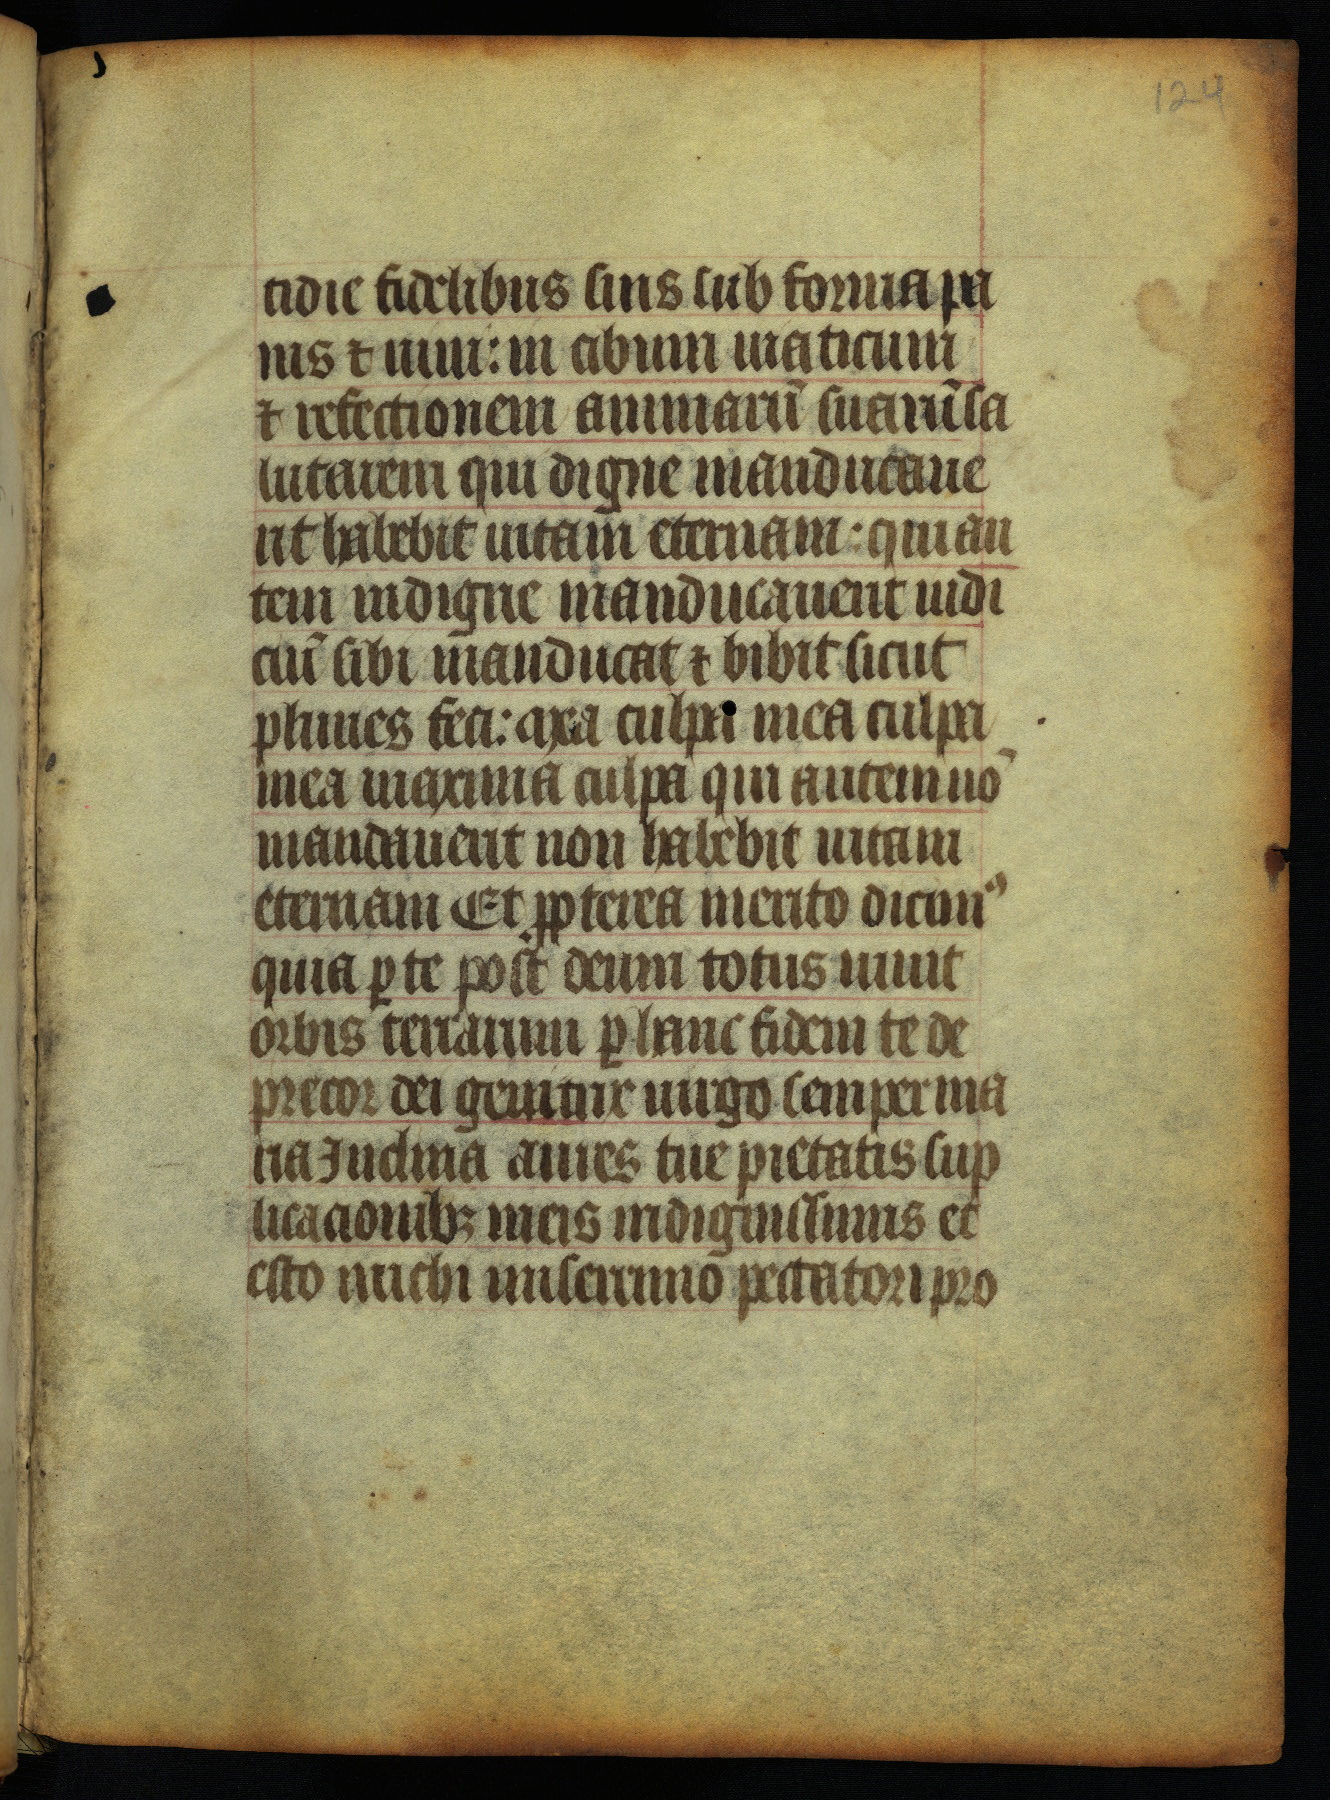 124
tidie fidelibus suis sub forma pa
nis ⁊ uini: in cibum uiaticum
⁊ refectionem animarū suarū sa
lutarem qui digne manducaue
rit habebit uitam eternam: qui au
tem indigne manducauerit iudi
ciū sibi manducat ⁊ bibit sicut
plures feci: Mea culpa mea culpa
mea maxima culpa qui autem nō
mandauerit non habebit uitam
eternam Et ꝓpterea merito dicim᷒
quia ꝑ te post deum totus uiuit
orbis terrarum ꝑ hanc fidem te de
precor dei genitrix uirgo semper ma
ria Inclina aures tue pietatis sup
licacionibꝫ meis indignissimis et
esto michi miserrimo peccatori pro